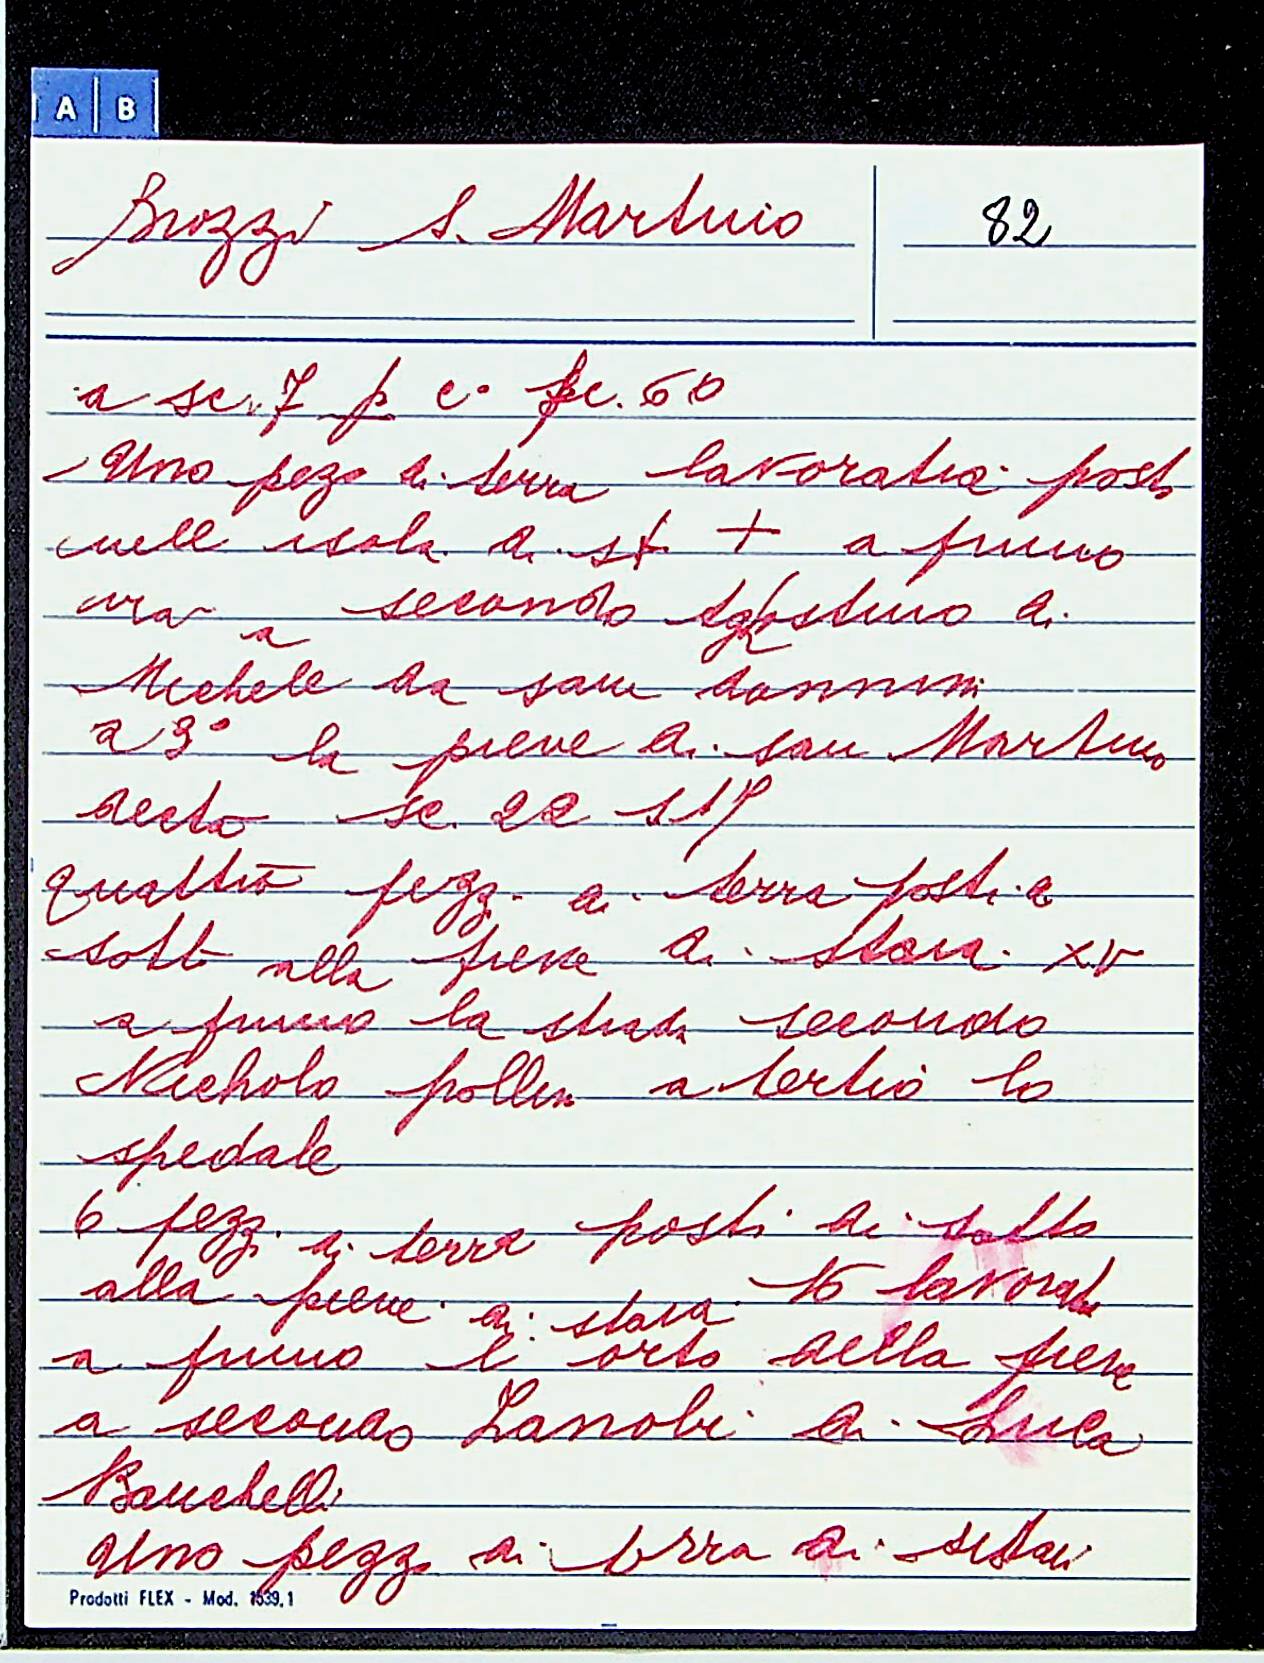 A B
Brozzi S. Martino
82
a sc. 7 p c° fc. 60
Uno pezo di terra lavoratia posto
nell isola di st + a primo
via a secondo Aghostino di
Michele da san donnini
a 3° la pieve di san Martino
decto sc. 22 st
quattro pezzi di terra posti a
sotto alla pieve di staia xv
a primo la strada secondo
Nicholo pollin a tertio lo
spedale
6 pezzi di terra posti di sotto
alla pieve di staia 16 lavorat
a primo l orto della pieve
a secondo Zanobi di Luca
Banchelli
Uno pezzo di terra di sistaii
Prodotti FLEX - Mod. 1539.1